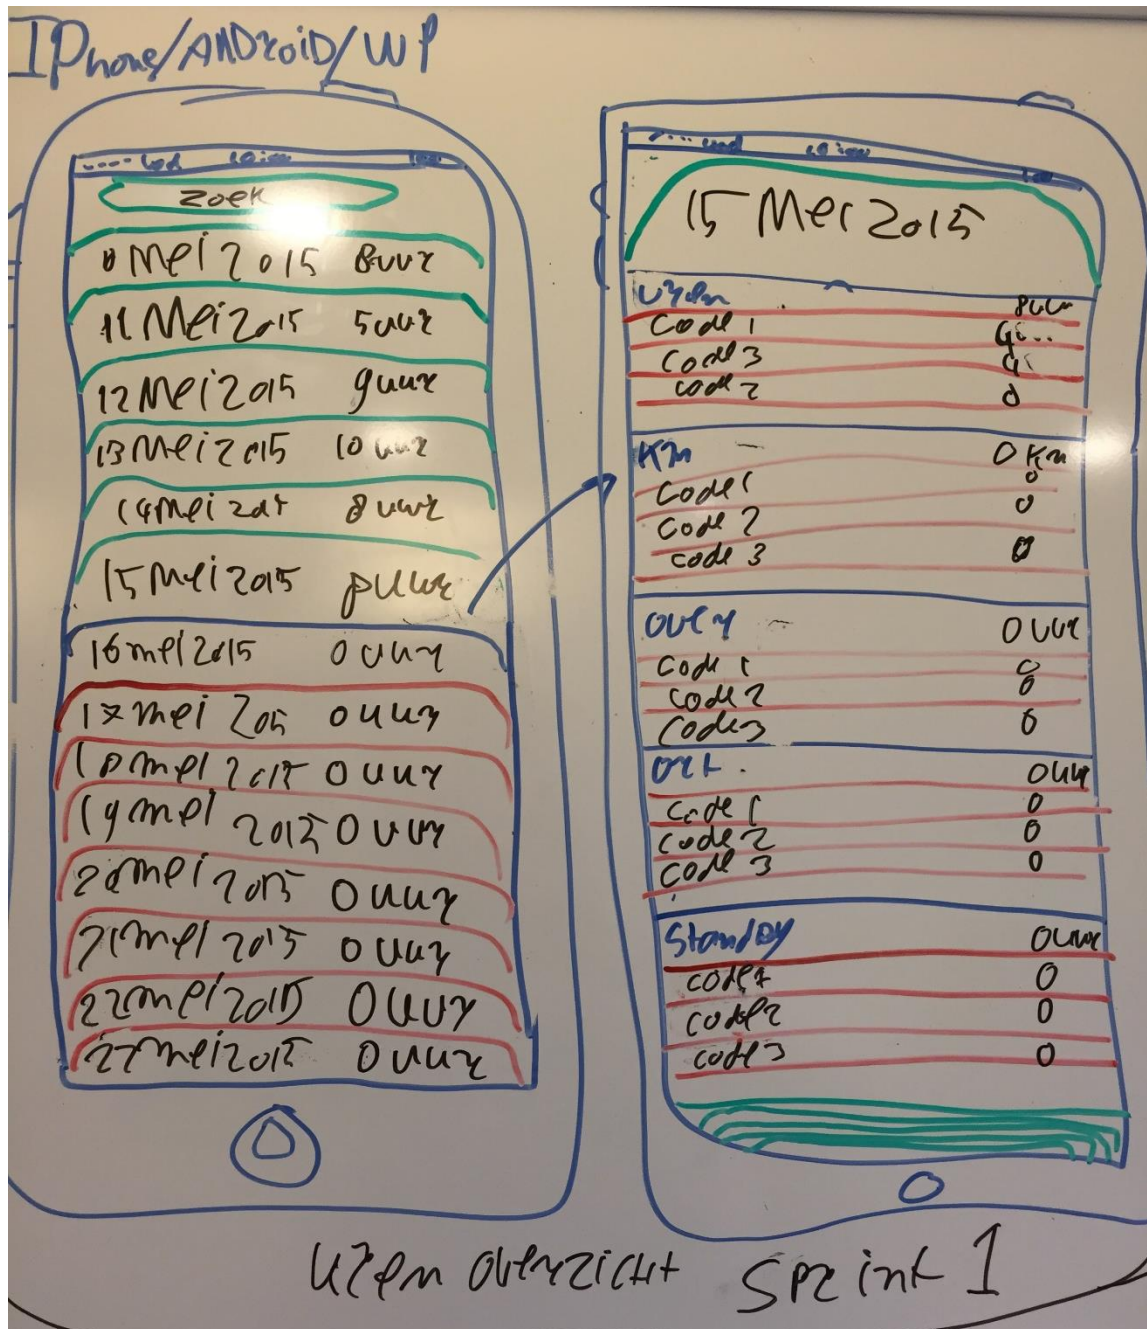 IPhone/ANDroiD/WP
zoek
0 Mei 2015 8uur
11 Mei 2015 5uur
12 Mei 2015 9uur
13 Mei 2015 10 uur
14 mei 201 8 uur
15 Mei 2015 8uur
16 mei 2015 0 uur
17 mei 205 0 uur
18 mei 2015 0 uur
19 mei 2015 0 uur
20 mei 2015 0 uur
21 mei 2015 0 uur
22 mei 2015 0 uur
27 mei 2015 0 uur
15 Mei 2015
Uren 8uur
Code 1
Code 3
Code 2 0
Km 0 Km
Code 1 0
Code 2 0
Code 3 0
Over 0 uur
Code 1 0
Code 2 0
Code 3 0
ORT. 0 uur
Code 1 0
Code 2 0
Code 3 0
Standby 0 uur
code 1 0
code 2 0
code 3 0
Uren overzicht Sprint 1